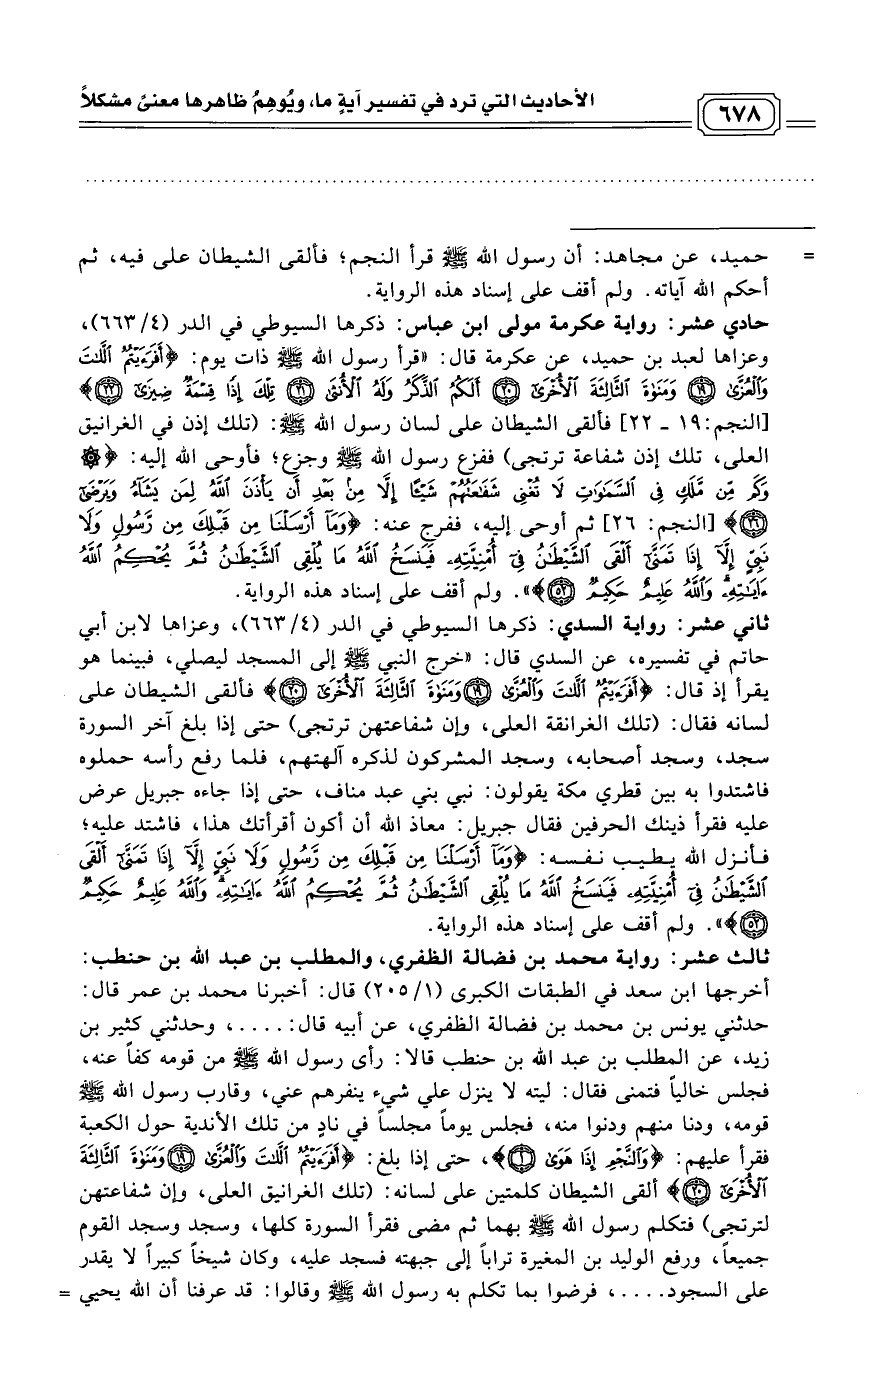 الأحاديث التي ترد في تفسير آيةٍ ما، ويُوهِمُ ظاهرها معنىً مشكلاً
٦٧٨
= حميد، عن مجاهد: أن رسول الله ﷺ قرأ النجم؛ فألقى الشيطان على فيه، ثم
أحكم الله آياته. ولم أقف على إسناد هذه الرواية.
حادي عشر: رواية عكرمة مولى ابن عباس: ذكرها السيوطي في الدر (٤/ ٦٦٣)،
وعزاها لعبد بن حميد، عن عكرمة قال: «قرأ رسول الله ﷺ ذات يوم: ﴿أَفَرَءَيْتُمُ ٱللَّٰتَ
وَٱلْعُزَّىٰ ۝١٩ وَمَنَوٰةَ ٱلثَّالِثَةَ ٱلْأُخْرَىٰ ۝٢٠ أَلَكُمُ ٱلذَّكَرُ وَلَهُ ٱلْأُنثَىٰ ۝٢١ تِلْكَ إِذًا قِسْمَةٌ ضِيزَىٰ ۝٢٢﴾
[النجم: ١٩ - ٢٢] فألقى الشيطان على لسان رسول الله ﷺ: (تلك إذن في الغرانيق
العلى، تلك إذن شفاعة ترتجى) ففزع رسول الله ﷺ وجزع؛ فأوحى الله إليه: ﴿۞
وَكَم مِّن مَّلَكٍ فِى ٱلسَّمَٰوَٰتِ لَا تُغْنِى شَفَٰعَتُهُمْ شَيْـًٔا إِلَّا مِنۢ بَعْدِ أَن يَأْذَنَ ٱللَّهُ لِمَن يَشَآءُ وَيَرْضَىٰٓ
۝٢٦﴾ [النجم: ٢٦] ثم أوحى إليه، ففرج عنه: ﴿وَمَآ أَرْسَلْنَا مِن قَبْلِكَ مِن رَّسُولٍ وَلَا
نَبِىٍّ إِلَّآ إِذَا تَمَنَّىٰٓ أَلْقَى ٱلشَّيْطَٰنُ فِىٓ أُمْنِيَّتِهِۦ فَيَنسَخُ ٱللَّهُ مَا يُلْقِى ٱلشَّيْطَٰنُ ثُمَّ يُحْكِمُ ٱللَّهُ
ءَايَٰتِهِۦ وَٱللَّهُ عَلِيمٌ حَكِيمٌ ۝٥٢﴾». ولم أقف على إسناد هذه الرواية.
ثاني عشر: رواية السدي: ذكرها السيوطي في الدر (٤/ ٦٦٣)، وعزاها لابن أبي
حاتم في تفسيره، عن السدي قال: «خرج النبي ﷺ إلى المسجد ليصلي، فبينما هو
يقرأ إذ قال: ﴿أَفَرَءَيْتُمُ ٱللَّٰتَ وَٱلْعُزَّىٰ ۝١٩ وَمَنَوٰةَ ٱلثَّالِثَةَ ٱلْأُخْرَىٰ ۝٢٠﴾ فألقى الشيطان على
لسانه فقال: (تلك الغرانقة العلى، وإن شفاعتهن ترتجى) حتى إذا بلغ آخر السورة
سجد، وسجد أصحابه، وسجد المشركون لذكره آلهتهم، فلما رفع رأسه حملوه
فاشتدوا به بين قطري مكة يقولون: نبي بني عبد مناف، حتى إذا جاءه جبريل عرض
عليه فقرأ ذينك الحرفين فقال جبريل: معاذ الله أن أكون أقرأتك هذا، فاشتد عليه؛
فأنزل الله يطيب نفسه: ﴿وَمَآ أَرْسَلْنَا مِن قَبْلِكَ مِن رَّسُولٍ وَلَا نَبِىٍّ إِلَّآ إِذَا تَمَنَّىٰٓ أَلْقَى
ٱلشَّيْطَٰنُ فِىٓ أُمْنِيَّتِهِۦ فَيَنسَخُ ٱللَّهُ مَا يُلْقِى ٱلشَّيْطَٰنُ ثُمَّ يُحْكِمُ ٱللَّهُ ءَايَٰتِهِۦ وَٱللَّهُ عَلِيمٌ حَكِيمٌ
۝٥٢﴾». ولم أقف على إسناد هذه الرواية.
ثالث عشر: رواية محمد بن فضالة الظفري، والمطلب بن عبد الله بن حنطب:
أخرجها ابن سعد في الطبقات الكبرى (١/ ٢٠٥) قال: أخبرنا محمد بن عمر قال:
حدثني يونس بن محمد بن فضالة الظفري، عن أبيه قال: ....، وحدثني كثير بن
زيد، عن المطلب بن عبد الله بن حنطب قالا: رأى رسول الله ﷺ من قومه كفاً عنه،
فجلس خالياً فتمنى فقال: ليته لا ينزل علي شيء ينفرهم عني، وقارب رسول الله ﷺ
قومه، ودنا منهم ودنوا منه، فجلس يوماً مجلساً في نادٍ من تلك الأندية حول الكعبة
فقرأ عليهم: ﴿وَٱلنَّجْمِ إِذَا هَوَىٰ ۝١﴾، حتى إذا بلغ: ﴿أَفَرَءَيْتُمُ ٱللَّٰتَ وَٱلْعُزَّىٰ ۝١٩ وَمَنَوٰةَ ٱلثَّالِثَةَ
ٱلْأُخْرَىٰ ۝٢٠﴾ ألقى الشيطان كلمتين على لسانه: (تلك الغرانيق العلى، وإن شفاعتهن
لترتجى) فتكلم رسول الله ﷺ بهما ثم مضى فقرأ السورة كلها، وسجد وسجد القوم
جميعاً، ورفع الوليد بن المغيرة تراباً إلى جبهته فسجد عليه، وكان شيخاً كبيراً لا يقدر
على السجود....، فرضوا بما تكلم به رسول الله ﷺ وقالوا: قد عرفنا أن الله يحيي =